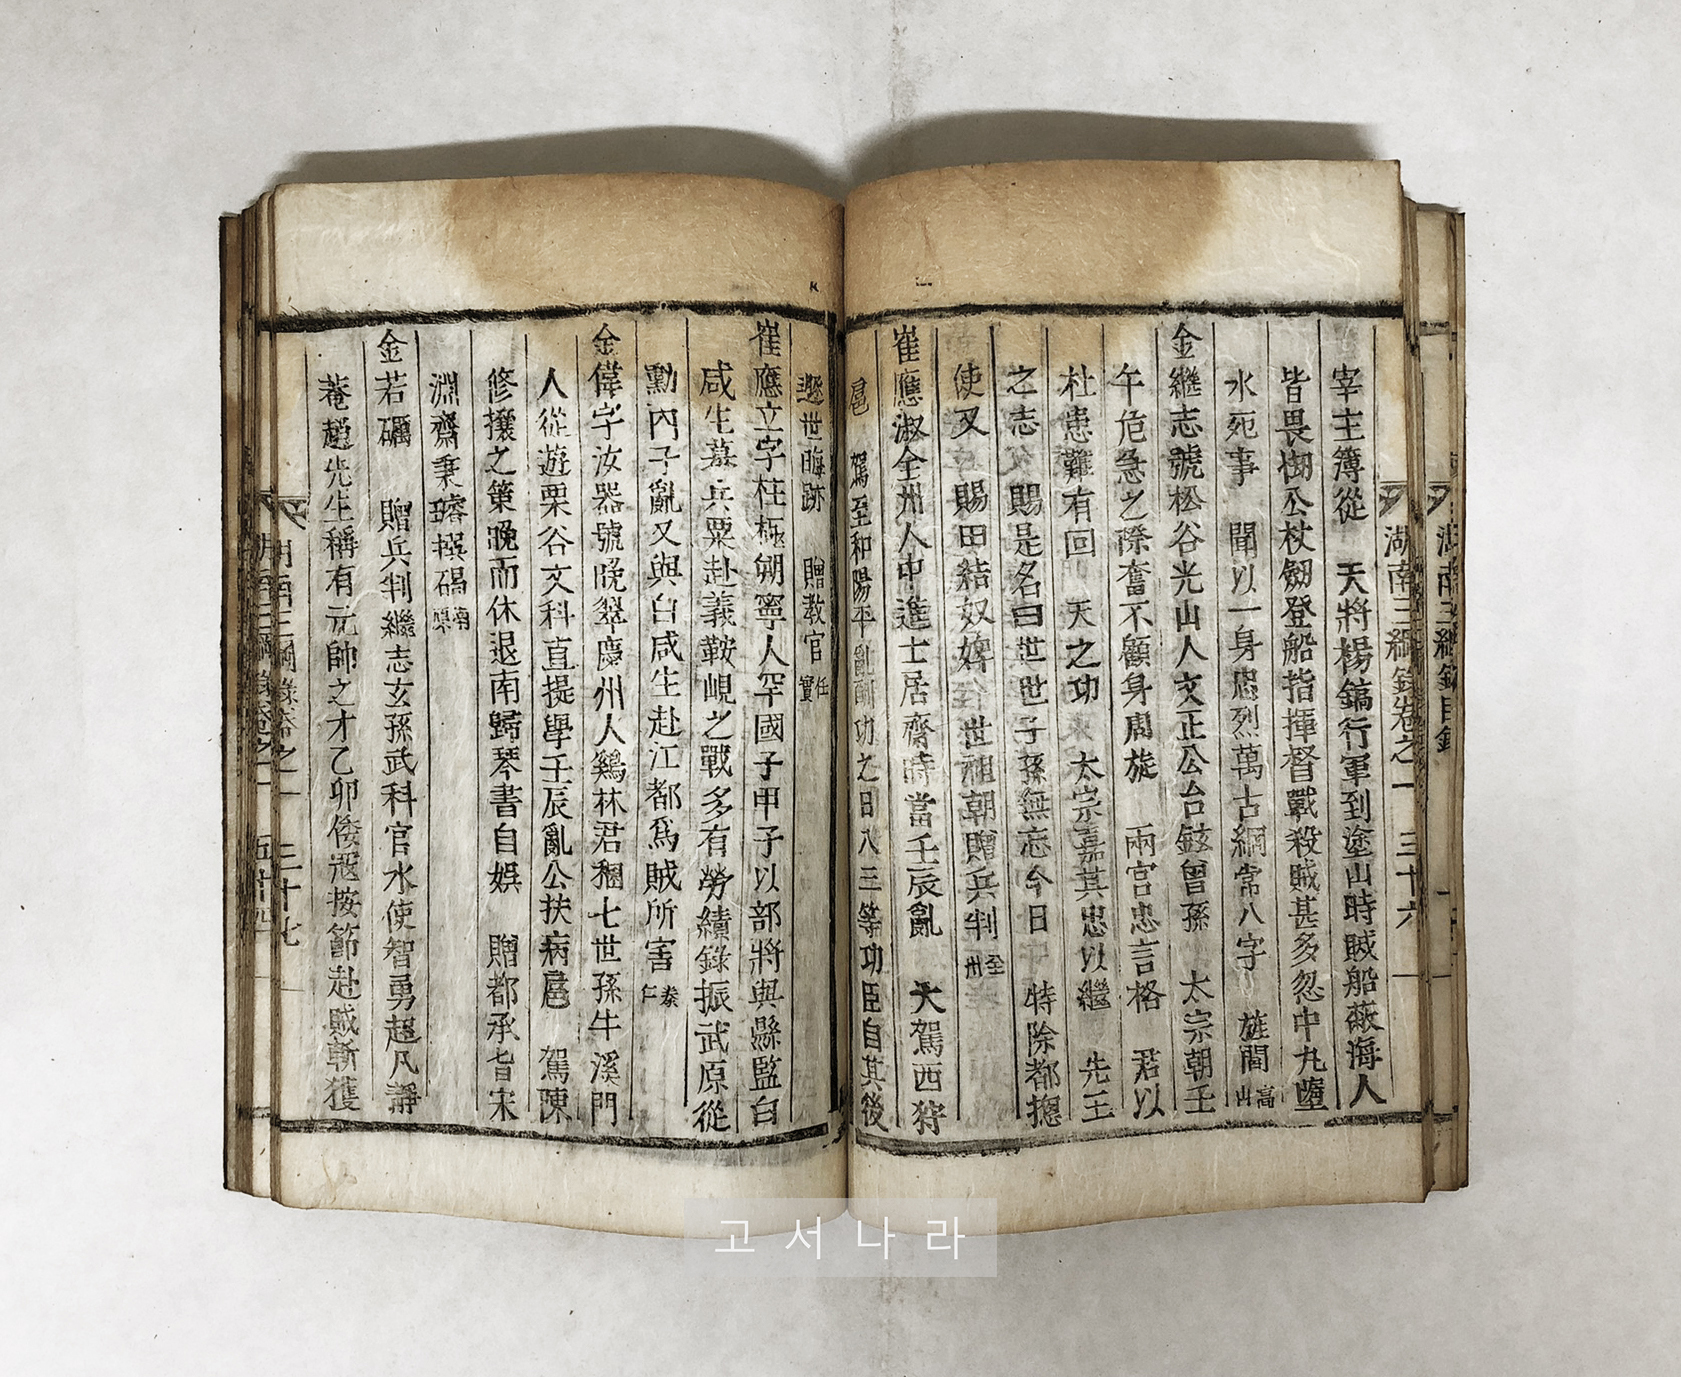 湖南三綱錄目錄
湖南三綱錄卷之一 三十六
宰主簿從 天將楊鎬行軍到塗山時賊船蔽海人
皆畏惻公杖劒登船指揮督戰殺賊甚多忽中丸墮
水死事 聞以一身忠烈萬古綱常八字 旌閭 高山
金繼志號松谷光山人文正公台鉉曾孫 太宗朝壬
午危急之際奮不顧身周旋 兩宮忠言格 君以
杜患難有回 天之功 太宗嘉其忠以繼 先王
之志 賜是名曰世世子孫無忘今日 特除都摠
使又 賜田結奴婢 世祖朝贈兵判 全州
崔應淑全州人中進士居齋時當壬辰亂 大駕西狩
扈 駕至和陽平亂酬功之日入三等功臣自其後
遯世晦跡 贈教官 任實
崔應立字柱極朔寧人罕國子甲子以部將與縣監白
咸生募兵粟赴義鞍峴之戰多有勞績錄振武原從
勳丙子亂又與白咸生赴江都爲賊所害 泰仁
金偉字汝器號晚翠慶州人鷄林君稛七世孫牛溪門
人從遊栗谷文科直提學壬辰亂公扶病扈 駕陳
修攘之策晚而休退南歸琴書自娛 贈都承旨宋
淵齋秉璿撰碣 南原
金若礪 贈兵判繼志玄孫武科官水使智勇超凡靜
菴趙先生稱有元帥之才乙卯倭寇按節赴賊斬獲
湖南三綱錄卷之一 三十七
고서나라